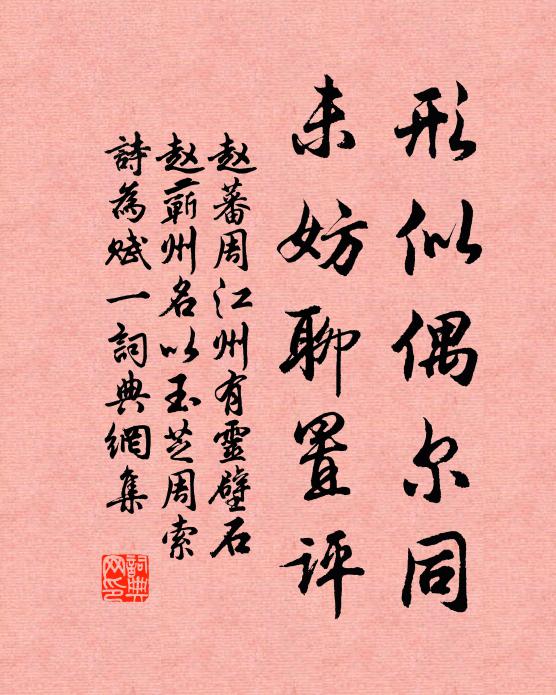 形似偶尔同
未妨聊置评
赵蕃周江州有靈壁石
赵蘄州名以玉芝周索
詩為赋一詞典網集
詞典网印